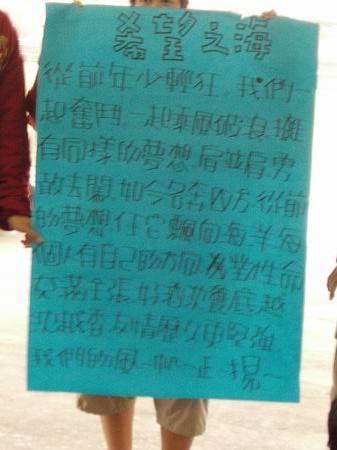 希望之海
從前年少輕狂我們一
起奮鬥一起乘風破浪擁
有同樣的夢想肩並肩勇
敢去闖如今各奔四方從前
的夢想任它飄向海洋每
個人有自己的方向為對生命
充滿主張好酒沉甕底越
沉越香友情歷久更堅強
我們的風帆一正揚